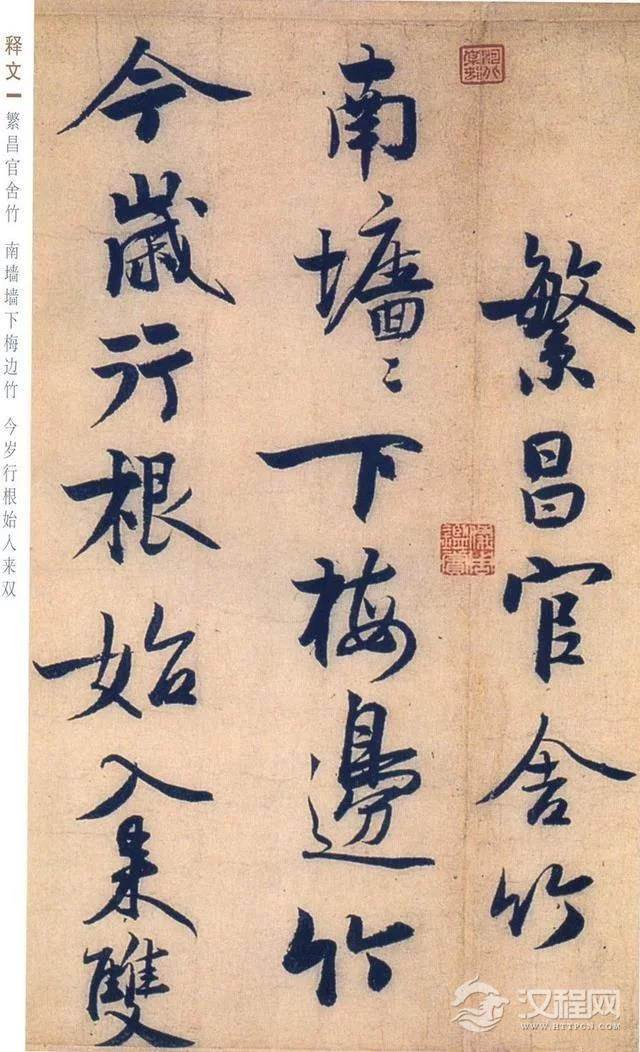 繁昌官舍竹
南墻〻下梅邊竹
今歲行根始入來雙
释文一 繁昌官舍竹 南墙墙下梅边竹 今岁行根始人来双
汉程网
WWW.HTTPCN.COM